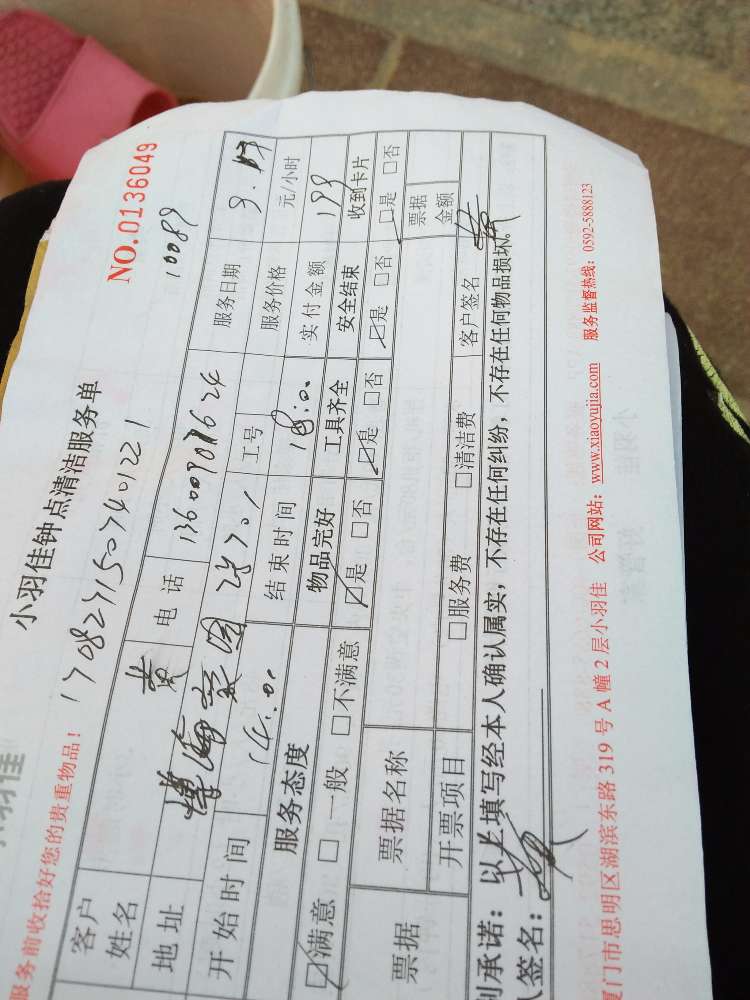 服务前收拾好您的贵重物品!
小羽佳钟点清洁服务单
NO.0136049
10089
客户姓名 黄 电话 服务日期
地址 服务价格 元/小时
开始时间 14:00 结束时间 18:00 工号 实付金额 199
服务态度 物品完好 工具齐全 安全结束 收到卡片
☑满意 □一般 □不满意 ☑是 □否 ☑是 □否 ☑是 □否 □是 □否
票据 票据名称 票据金额
开票项目 □服务费 □清洁费 客户签名
承诺:以上填写经本人确认属实,不存在任何纠纷,不存在任何物品损坏。
签名:
厦门市思明区湖滨东路 319 号 A 幢 2 层小羽佳 公司网站:www.xiaoyujia.com 服务监督热线:0592-5888123